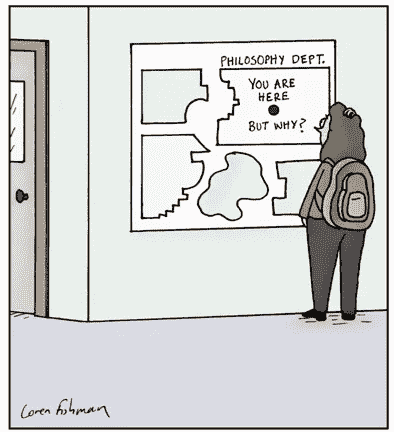 PHILOSOPHY DEPT.
YOU ARE
HERE
BUT WHY?
Loren Fishman